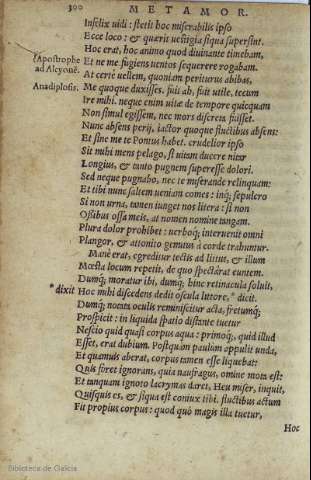 300 METAMOR.
Infelix uidi: stetit hoc miserabilis ipso
Ecce loco: & quærit uestigia siqua supersint.
Hoc erat, hoc animo quod diuinante timebam,
Apostrophe ad Alcyonē.
Et ne me fugiens uentos sequerere rogabam.
At certè uellem, quoniam periturus abibas,
Anadiplosis.
Me quoque duxisses. fuit ah, fuit utile, tecum
Ire mihi. neque enim uitæ de tempore quicquam
Non simul egissem, nec mors discreta fuisset.
Nunc absens perij, iactor quoque fluctibus absens:
Et sine me te Pontus habet. crudelior ipso
Sit mihi mens pelago, si uitam ducere nitar
Longius, & tanto pugnem superesse dolori.
Sed neque pugnabo, nec te miserande relinquam:
Et tibi nunc saltem ueniam comes: inq; sepulcro
Si non urna, tamen iunget nos litera: si non
Ossibus ossa meis, at nomen nomine tangam.
Plura dolor prohibet: uerboq; interuenit omni
Plangor, & attonito gemitus à corde trahuntur.
Mane erat, egreditur tectis ad littus, & illum
Mœsta locum repetit, de quo spectârat euntem.
Dumq; moratur ibi, dumq; hinc retinacula soluit,
*dixit
Hoc mihi discedens dedit oscula littore, * dicit.
Dumq; notata oculis reminiscitur acta, fretumq;
Prospicit: in liquida spatio distante tuetur
Nescio quid quasi corpus aqua: primoq;, quid illud
Esset, erat dubium. Postquam paulum appulit unda,
Et quamuis aberat, corpus tamen esse liquebat:
Quis foret ignorans, quia naufragus, omine mota est:
Et tanquam ignoto lacrymas daret, Heu miser, inquit,
Quisquis es, & siqua est coniux tibi. fluctibus actum
Fit propius corpus: quod quò magis illa tuetur,
Hoc
Biblioteca de Galicia